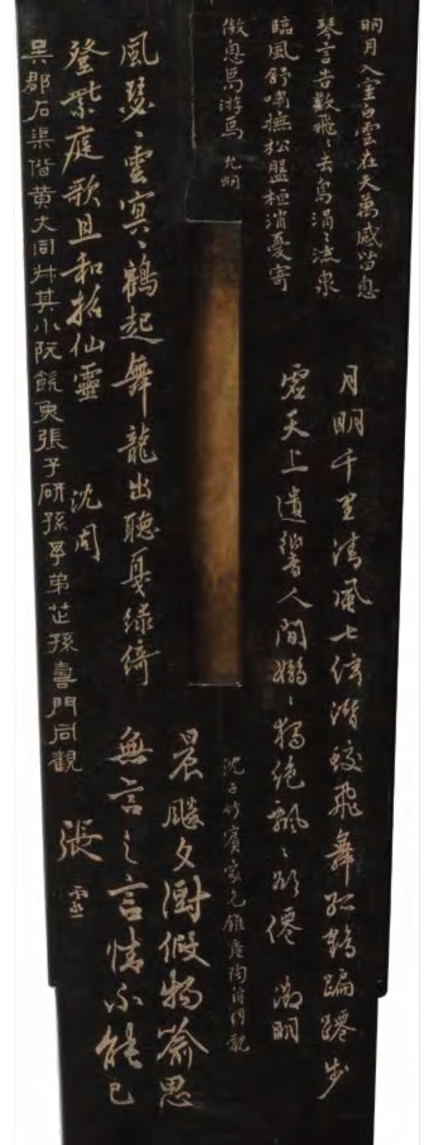 明月入室白雲在天萬感皆息
琴言告歡飛飛去鳥涓涓流泉
臨風舒嘯撫松盤桓消憂寄
傲息焉游焉 允明
月明千里清風七絃潛蛟飛舞孤鶴蹁躚步
虛天上遺響人間嫋嫋獨絕飄飄欲僊 徵明
沈子竹賓家兄雒產同時得觀
風瑟瑟雲冥冥鶴起舞龍出聽戛綠綺
登紫庭歌且和招仙靈
沈周
晨飈夕澍假物喻思
無言之言情不能已
張靈
吳郡石渠偕黃大同叔其小阮饒更張子研孫弟芷孫喜門同觀